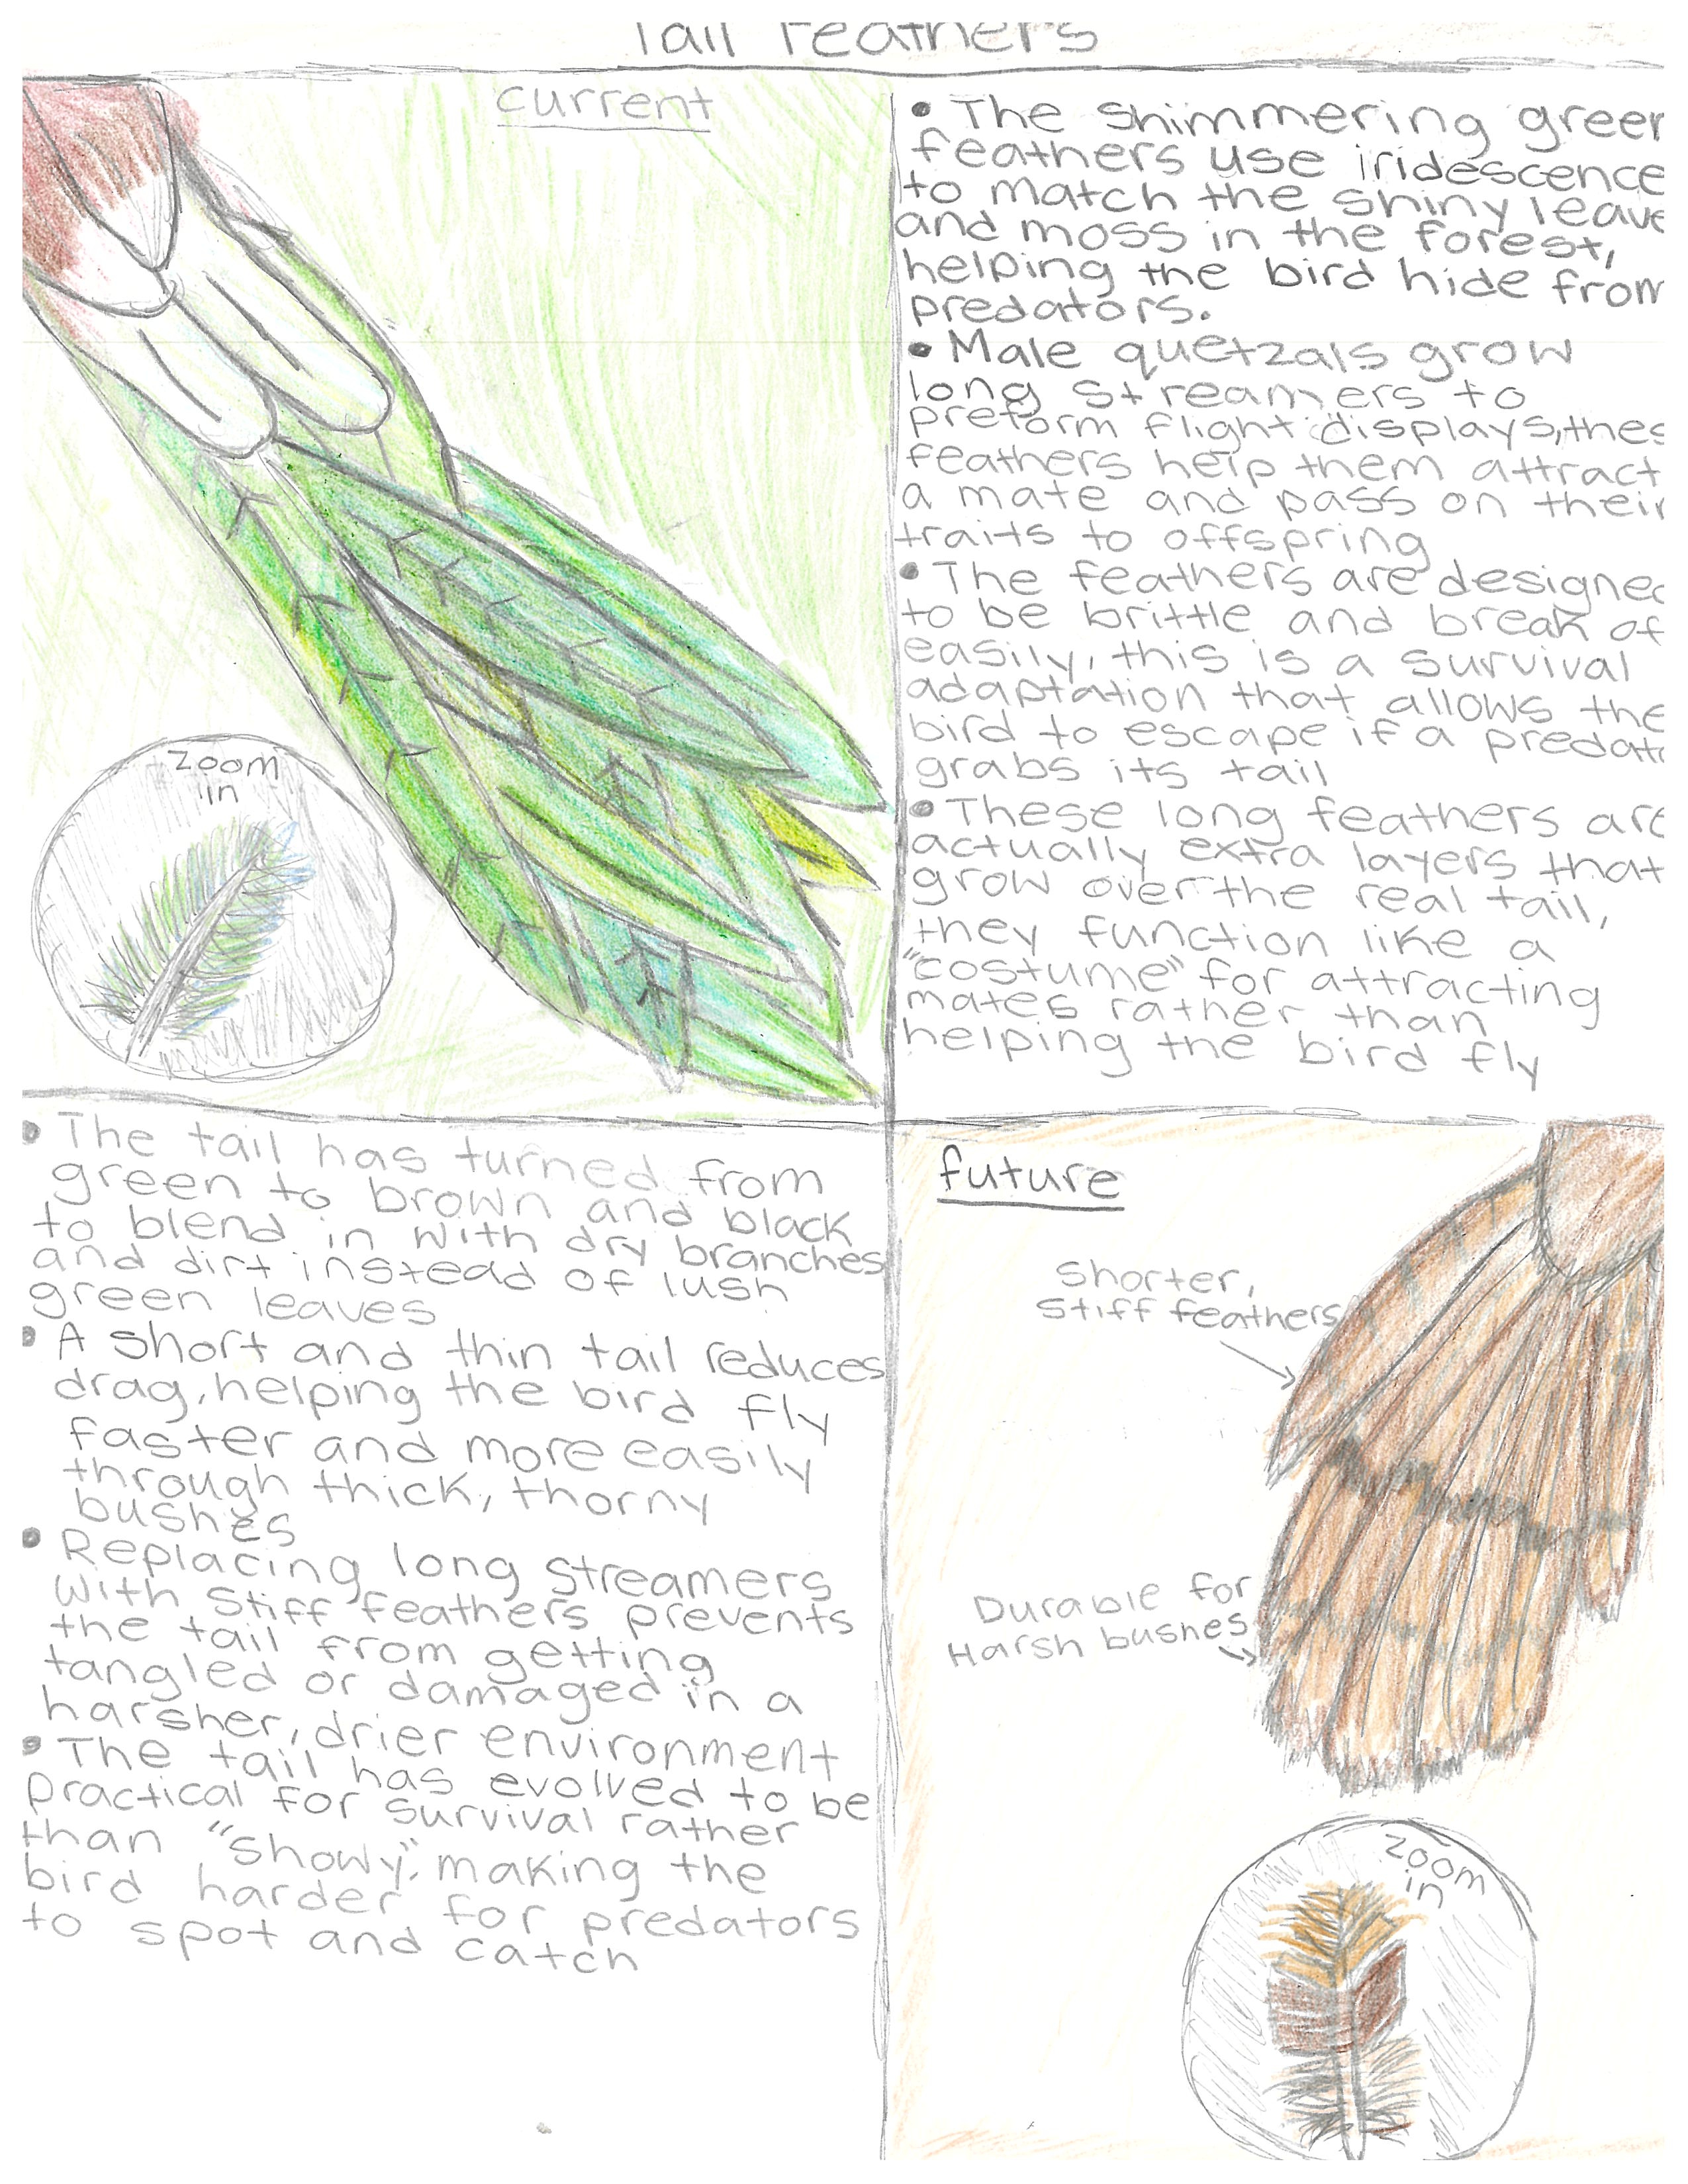 Tail Feathers
current
• The shimmering green
feathers use iridescence
to match the shiny leave
and moss in the forest,
helping the bird hide from
predators.
• Male quetzals grow
long streamers to
preform flight displays, thes
feathers help them attract
a mate and pass on their
traits to offspring
• The feathers are designed
to be brittle and break of
easily, this is a survival
adaptation that allows the
bird to escape if a predato
grabs its tail
• These long feathers are
actually extra layers that
grow over the real tail,
they function like a
"costume" for attracting
mates rather than
helping the bird fly
zoom
in
• The tail has turned from
green to brown and black
to blend in with dry branches
and dirt instead of lush
green leaves
• A short and thin tail reduces
drag, helping the bird fly
faster and more easily
through thick, thorny
bushes
• Replacing long streamers
with stiff feathers prevents
the tail from getting
tangled or damaged in a
harsher, drier environment
• The tail has evolved to be
practical for survival rather
than "showy", making the
bird harder for predators
to spot and catch
future
Shorter,
stiff feathers
Durable for
Harsh bushes
zoom
in